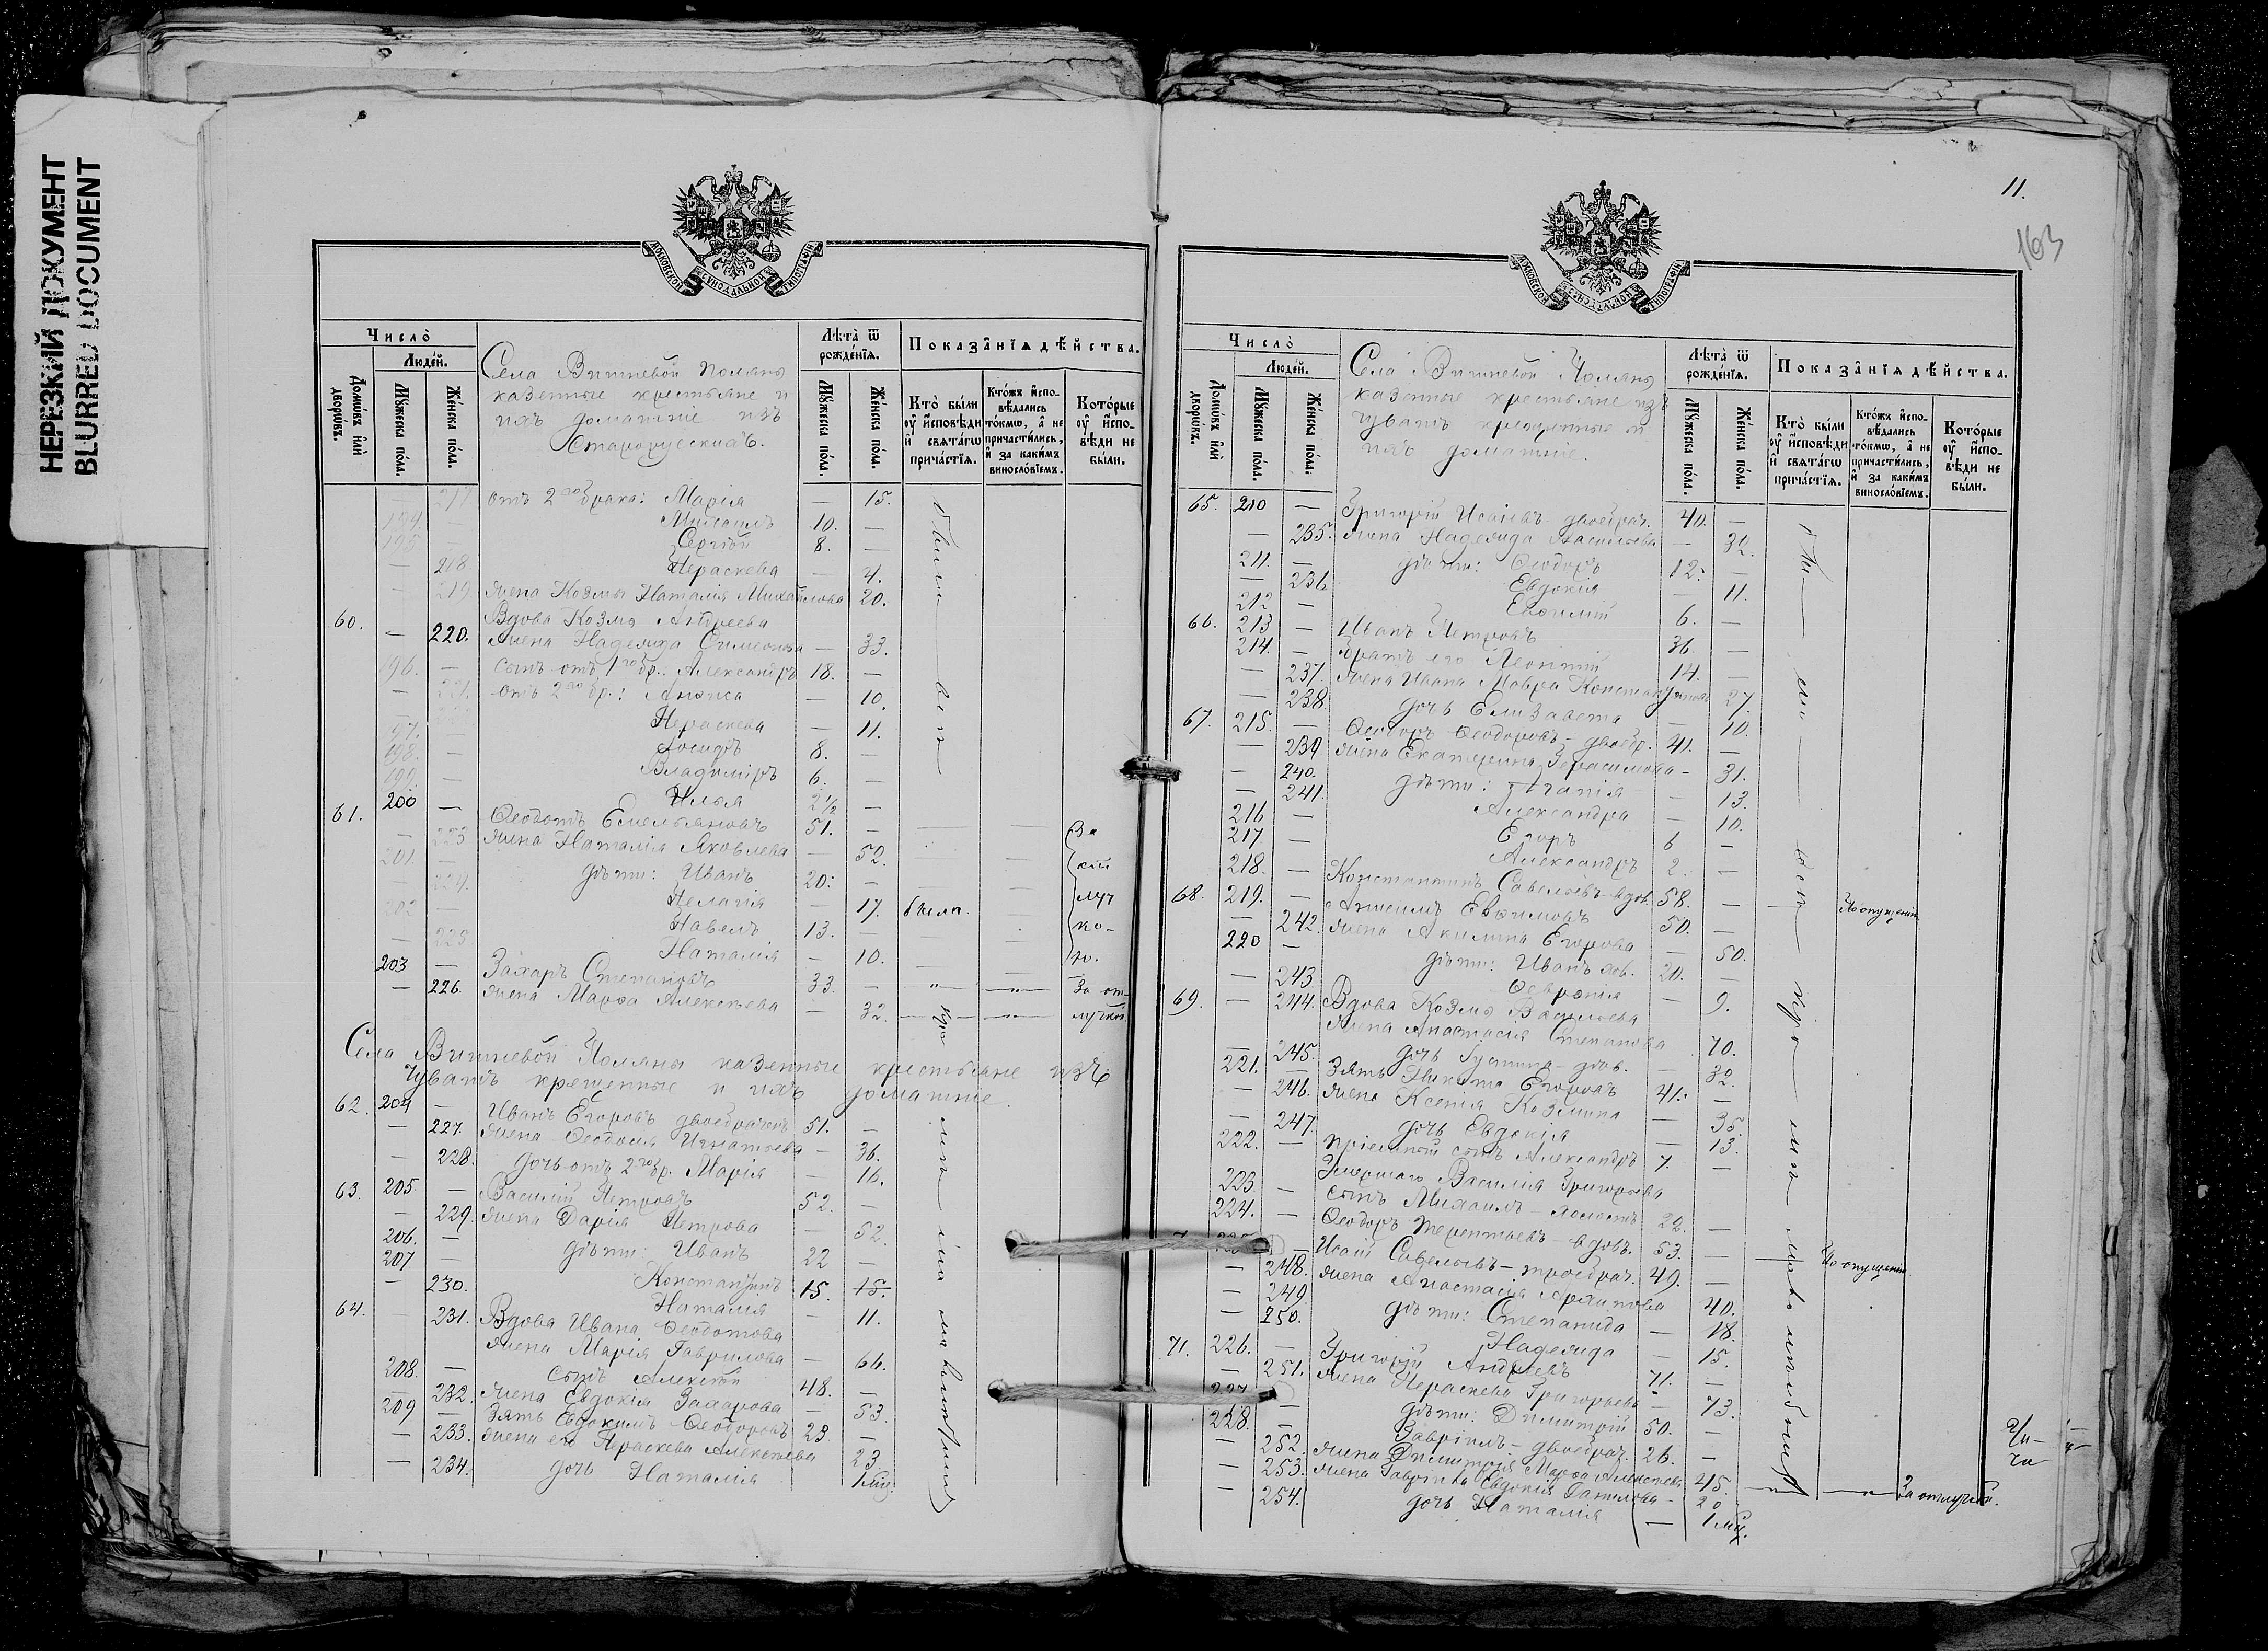 НЕРЕЗКИЙ ДОКУМЕНТ
BLURRED DOCUMENT
МОСКОВСКОЙ СѴНОДАЛЬНОЙ ТИПОГРАФІИ
Число̀
Людей.
Домѡвъ или дворѡвъ.
Мꙋжеска пола.
Женска пола.
Села Вишневой Поляны
казенные крестьяне и
ихъ домашніе изъ
Старорусскихъ.
Лѣта ѿ рожденїѧ.
Мꙋжеска пола.
Женска пола.
Показанїѧ дѣйства.
Кто были оу исповѣди и свѧтагѡ причастїѧ.
Ктожъ исповѣдались токмѡ, а не причастились, и за какимъ винословїемъ.
Которые оу исповѣди не были.
— 217 отъ 2го брака: Марія — 15.
194. — Михаилъ 10. —
195 — Сергѣй 8. —
— 218 Параскева — 4.
— 219 жена Козмы Наталія Михайлова 20.
60. Вдова Козмы Андреева
— 220. жена Надежда Симеонова — 33.
196. — сынъ отъ 1го бр. Александръ 18. —
— 221. отъ 2го бр.: Анѳиса — 10.
Параскева — 11.
197. — 8. —
198. — Владиміръ 6. —
199. — Илья 2 1/2 —
61. 200 — Ѳеодотъ Емельяновъ 51. —
— 223 жена Наталія Яковлева — 52.
201. — дѣти: Иванъ 20. —
— 224. Пелагія — 17. была.
202 — Павелъ 13. —
— 225 Наталія — 10.
203 — Захаръ Степановъ 33. —
— 226. жена Марѳа Алексѣева — 32.
За от-
лучкой
Села Вишневой Поляны казенные крестьяне изъ
Чувашъ крещенные и ихъ домашніе.
62. 204 — Иванъ Егоровъ двоебрачн. 51. —
— 227. жена Ѳеодосія Игнатьева — 36.
— 228. дочь отъ 2го бр. Марія — 16.
63. 205. — Василій Петровъ 52. —
— 229. жена Дарія Петрова — 52.
206. — дѣти: Иванъ 22 —
207 — Константинъ 15. 15.
— 230. Наталія — 11.
64. — 231. Вдова Ивана Ѳеодотова
жена Марія Гаврилова — 66.
208. — сынъ Алексѣй 48. —
— 232. жена Евдокія Захарова — 53.
209 — Зять Евдокимъ Ѳеодоровъ 23. —
— 233. жена его Параскева Алексѣева 23.
— 234. дочь Наталія 1 мц.
11.
163
МОСКОВСКОЙ СѴНОДАЛЬНОЙ ТИПОГРАФІИ
Число̀
Людей.
Домѡвъ или дворѡвъ.
Мꙋжеска пола.
Женска пола.
Села Вишневой Поляны
казенные крестьяне изъ
Чувашъ крещенные и
ихъ домашніе.
Лѣта ѿ рожденїѧ.
Мꙋжеска пола.
Женска пола.
Показанїѧ дѣйства.
Кто были оу исповѣди и свѧтагѡ причастїѧ.
Ктожъ исповѣдались токмѡ, а не причастились, и за какимъ винословїемъ.
Которые оу исповѣди не были.
65. 210 — Григорій Исаіевъ двоебрач. 40. —
— 235. жена Надежда Васильева — 32.
211. — дѣти: Ѳеодоръ 12. —
— 236 Евдокія — 11.
212 — Евѳимій 6. —
66. 213 — Иванъ Петровъ 36. —
214. — братъ его Леонтій 14. —
— 237. жена Ивана Мавра Константинова 27.
— 238 дочь Елизавета — 10.
67. 215. — Ѳеодоръ Ѳеодоровъ двоебр. 41. —
— 239 жена Екатерина Герасимова — 31.
— 240. дѣти: Агапія — 13.
— 241. Александра — 10.
216 — Егоръ 6 —
217 — Александръ 2. —
218. — Константинъ Савельевъ вдов. 58. — По опущенію
68. 219. — Анѳимъ Евѳимовъ 50. —
— 242. жена Акилина Егорова — 50.
220 — дѣти: Иванъ 20. —
— 243. Ѳевронія — 9.
69. — 244. Вдова Козмы Васильева
жена Анастасія Степанова 70.
— 245. дочь Іустина дѣв. — 32.
221. — Зять Никита Егоровъ 41. —
— 246. жена Ксенія Козмина — 35.
— 247 дочь Евдокія — 13.
222. — пріемный сынъ Александръ 7. —
Умершаго Василія Григорьева
223 — сынъ Михаилъ холостъ 22. —
224. — Ѳеодоръ Терентьевъ вдов. 53. — По опущенію
Исаій Савельевъ троебрач. 49. —
— 248. жена Анастасія Архипова 40.
— 249. дѣти: Степанида — 18.
— 250. Надежда — 15.
71. 226. — Григорій Андреевъ 71. —
— 251. жена Параскева Григорьева — 73.
227 — дѣти: Димитрій 50. —
228. — Гавріилъ двоебрач. 26. —
— 252. жена Димитрія Марѳа Алексѣева 45.
— 253. жена Гавріила Евдокія Данилова 20 За отлучкой.
— 254. дочь Наталія — 1 мц.